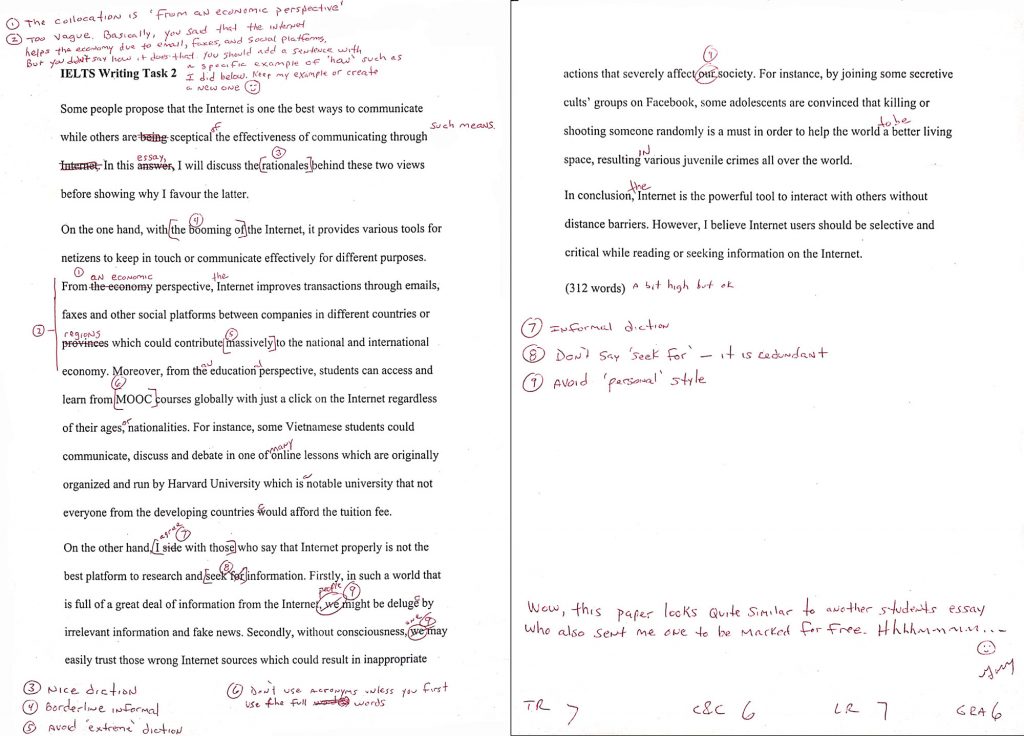 ① The collocation is 'from an economic perspective'
② Too vague. Basically, you said that the internet
helps the economy due to email, faxes, and social platforms.
But you didn't say how it does that. You should add a sentence with
a specific example of 'how' such as
I did below. Keep my example or create
a new one
IELTS Writing Task 2
Some people propose that the Internet is one the best ways to communicate
while others are being sceptical of the effectiveness of communicating through such means.
Internet. In this answer, essay, I will discuss the [rationales] ③ behind these two views
before showing why I favour the latter.
On the one hand, with [the booming of] ④ the Internet, it provides various tools for
netizens to keep in touch or communicate effectively for different purposes.
① an economic the
From the economy perspective, Internet improves transactions through emails,
faxes and other social platforms between companies in different countries or
②
regions ⑤
provinces which could contribute [massively] to the national and international
economy. Moreover, from the an education al perspective, students can access and
⑥
learn from [MOOC] courses globally with just a click on the Internet regardless
of their ages, or nationalities. For instance, some Vietnamese students could
communicate, discuss and debate in one of many online lessons which are originally
organized and run by Harvard University which is a notable university that not
everyone from the developing countries c would afford the tuition fee.
agree ⑦
On the other hand, [I side with those] who say that Internet properly is not the
⑧
best platform to research and [seek for] information. Firstly, in such a world that
people ⑨
is full of a great deal of information from the Internet, we might be deluge d by
one ⑨
irrelevant information and fake news. Secondly, without consciousness, we may
easily trust those wrong Internet sources which could result in inappropriate
③ Nice diction
④ Borderline informal
⑤ Avoid 'extreme' diction
⑥ Don't use acronyms unless you first
use the full words
⑨
actions that severely affect our society. For instance, by joining some secretive
cults' groups on Facebook, some adolescents are convinced that killing or
to be
shooting someone randomly is a must in order to help the world a better living
in
space, resulting various juvenile crimes all over the world.
the
In conclusion, Internet is the powerful tool to interact with others without
distance barriers. However, I believe Internet users should be selective and
critical while reading or seeking information on the Internet.
(312 words) A bit high but ok
⑦ Informal diction
⑧ Don't say 'seek for' – it is redundant
⑨ Avoid 'personal' style
Wow, this paper looks quite similar to another students essay
who also sent me one to be marked for free. Hhhhmmmm...
TR 7 C&C 6 LR 7 GRA 6